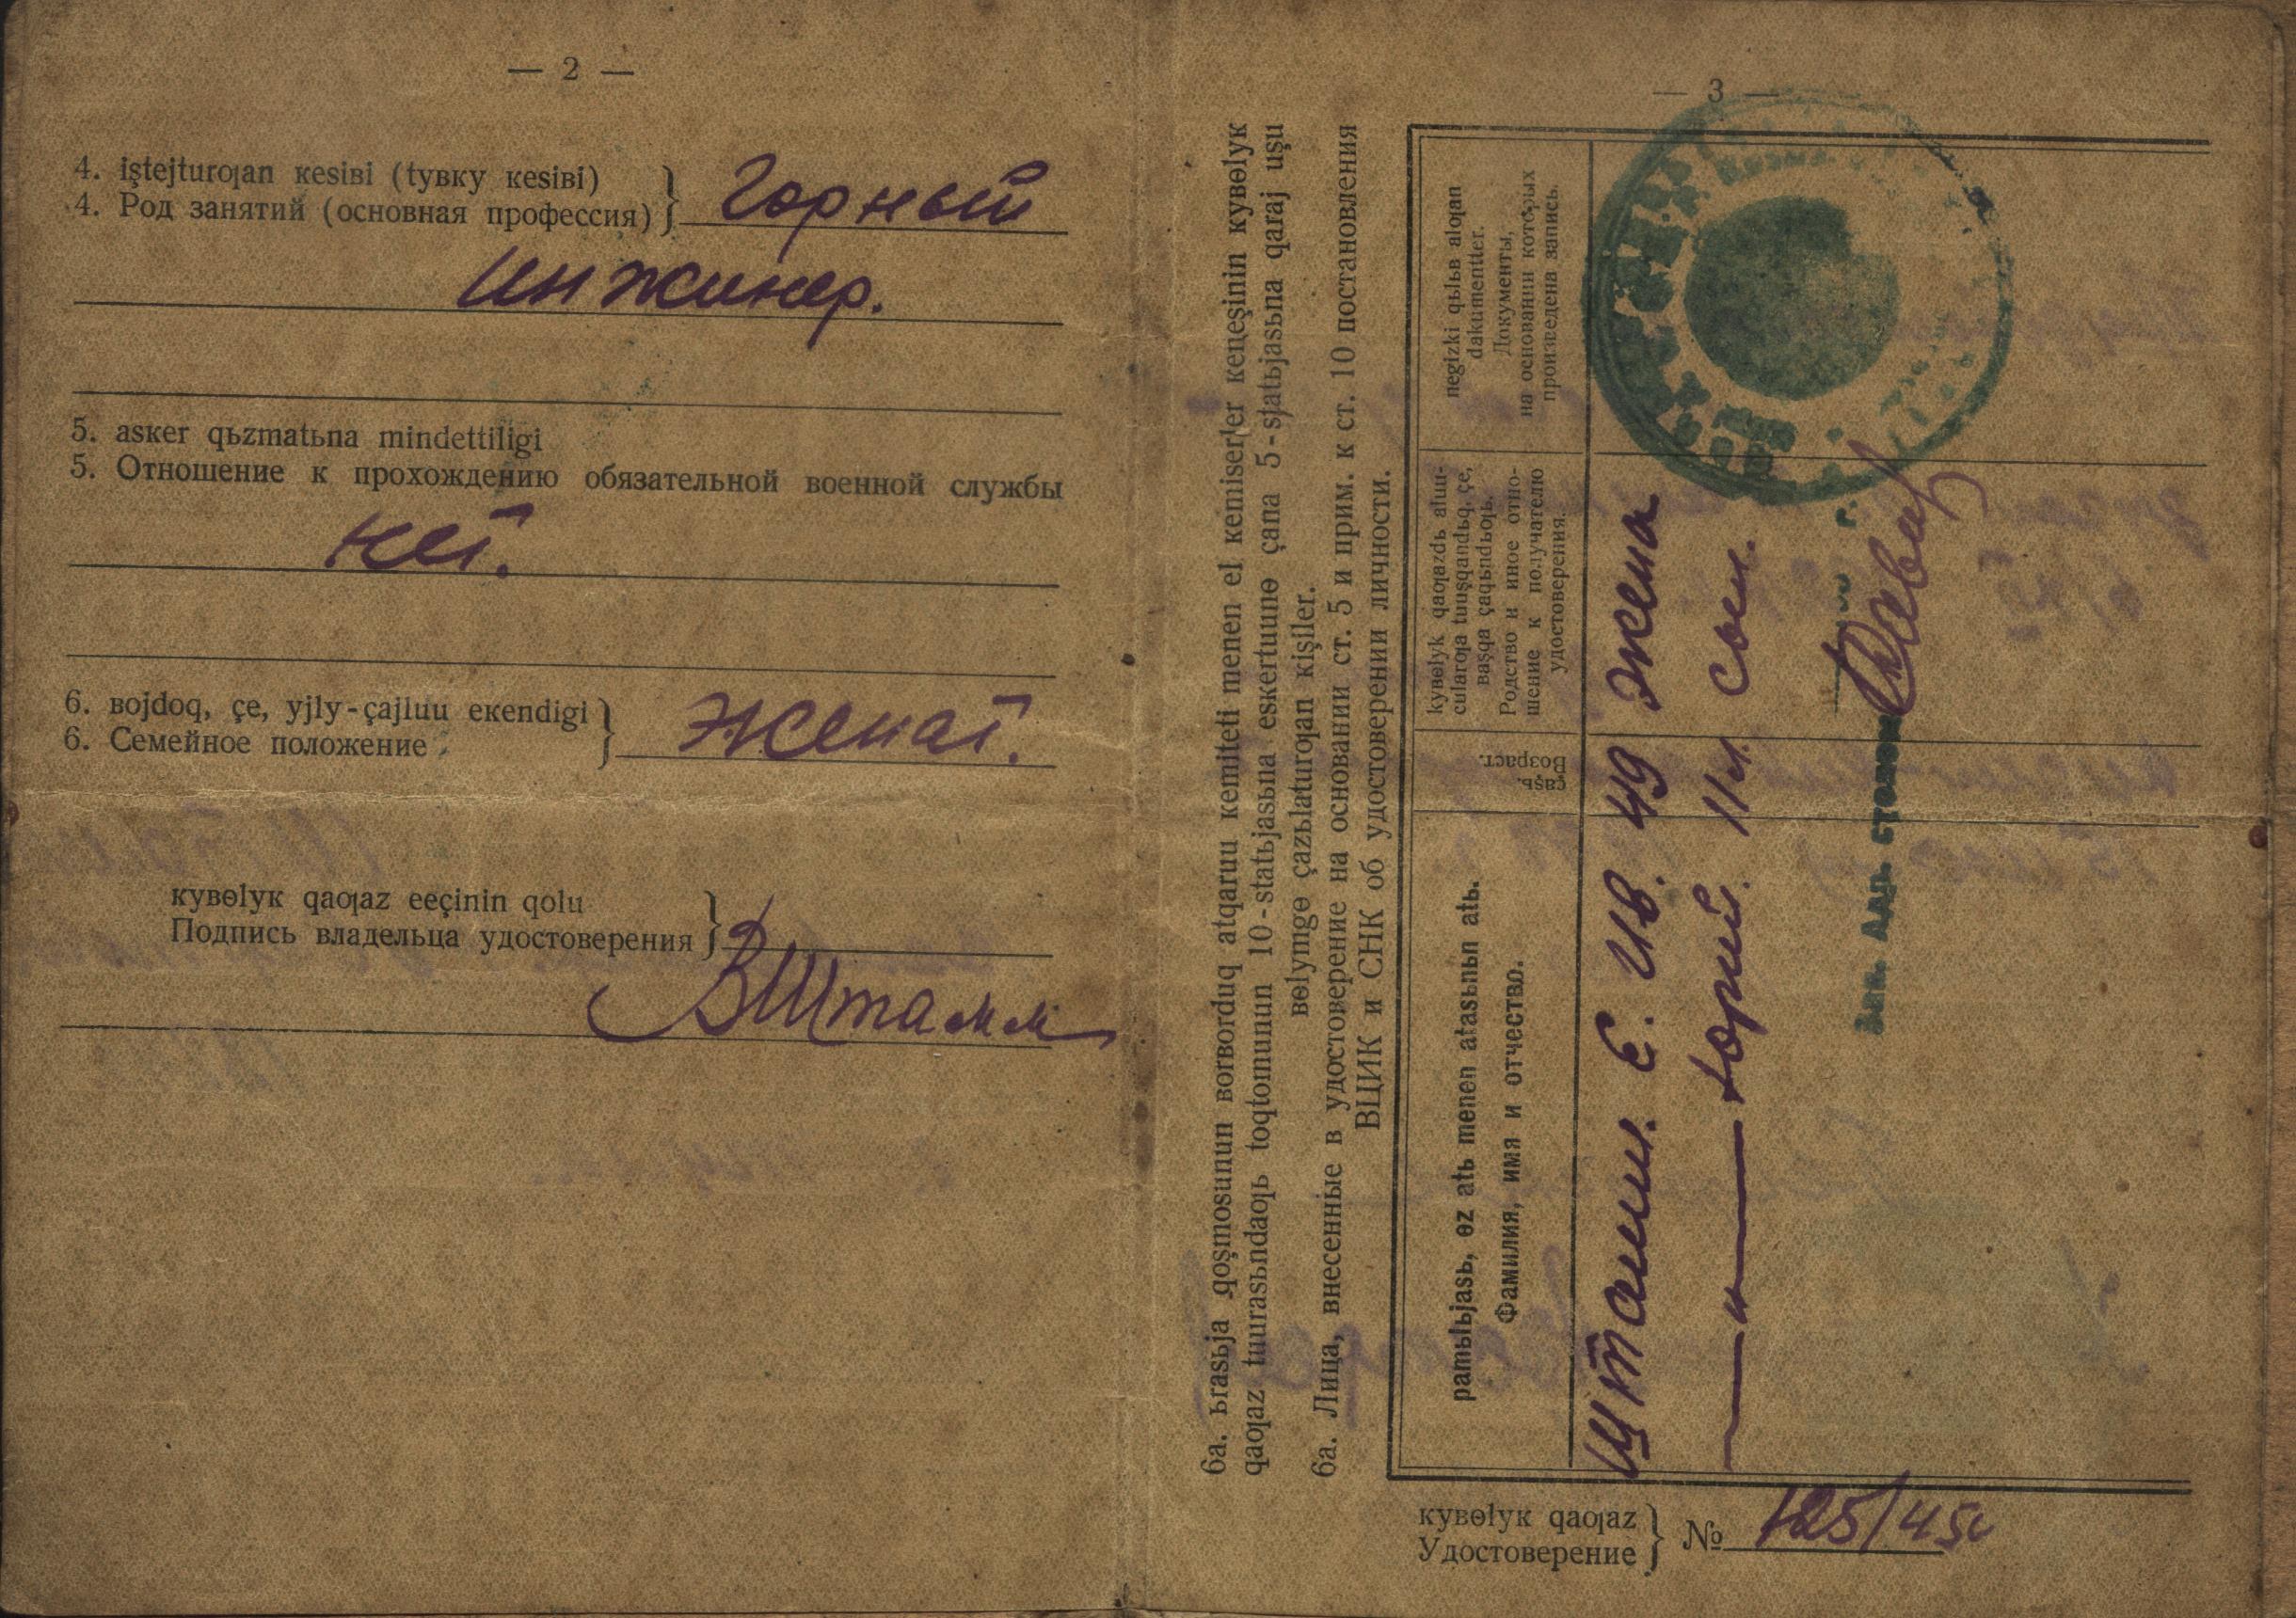 — 2 —
4. iştejturƣan kesiвi (tyвky kesiвi)
4. Род занятий (основная профессия)
Горный
инжинер.
5. asker qьzmatьna mindettiligi
5. Отношение к прохождению обязательной военной службы
нет.
6. вojdoq, çe, yjly-çajluu ekendigi
6. Семейное положение
женат.
kyвɵlyk qaƣaz eeçinin qolu
Подпись владельца удостоверения
ВШтамм
— 3 —
6a. ьrasьja qoşmosunun вorвorduq atqaruu kemiteti menen el kemiserler keŋeşinin kyвɵlyk
qaƣaz tuurasьndaƣь toqtomunun 10-statьjasьna eskertuunɵ çana 5-statьjasьna qaraj uşu
вɵlymgɵ çazьlaturƣan kişiler.
6а. Лица, внесенные в удостоверение на основании ст. 5 и прим. к ст. 10 постановления
ВЦИК и СНК об удостоверении личности.
pamьlьjasь, ɵz atь menen atasьnьn atь.
Фамилия, имя и отчество.
çaşь.
Возраст.
kyвɵlyk qaƣazdь aluu-
cularƣa tuuşqandьq, çe,
вaşqa çaqьndьƣь.
Родство и иное отно-
шение к получателю
удостоверения.
negizki qьlьв alƣan
dakumentter.
Документы,
на основании которых
произведена запись.
Штамм. Е. Ив. 49 жена
—"— Юрий. 11 л. сын.
Зав. Адр. столом
kyвɵlyk qaƣaz
Удостоверение
№ 125/45